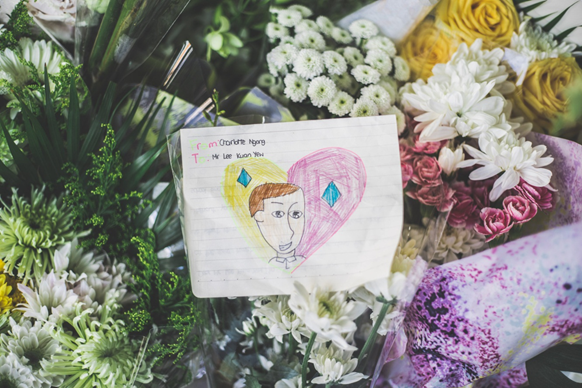 From: Charlotte Ngang
To: Mr Lee Kwan Yew